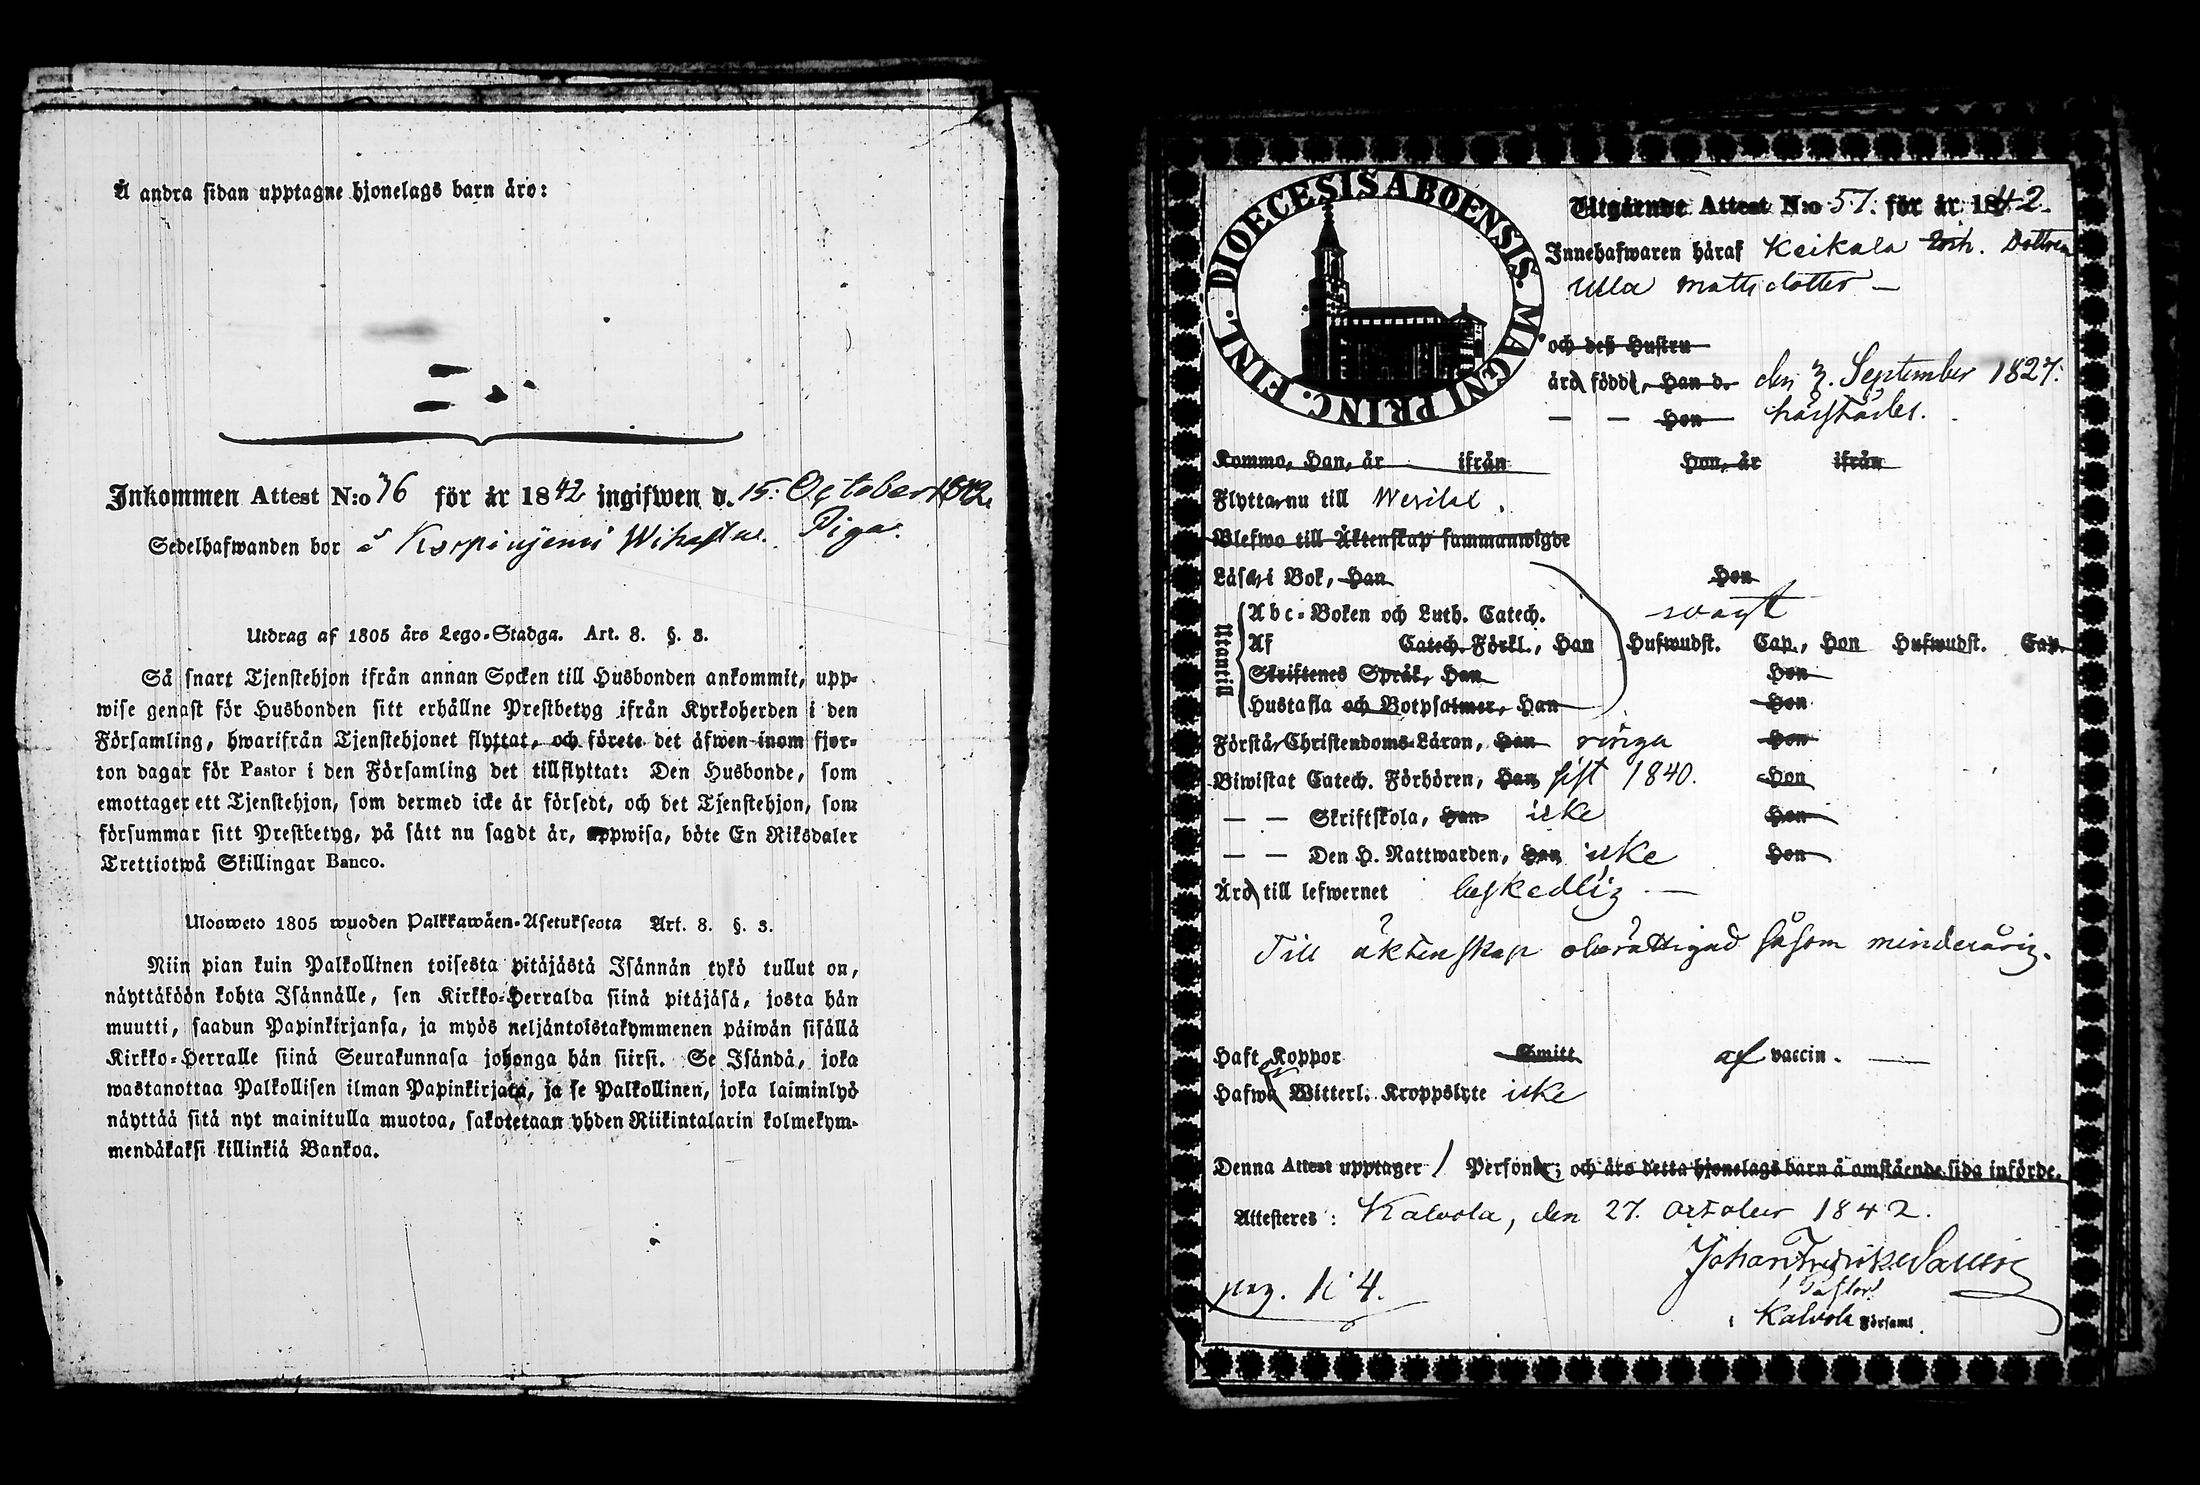 Å andra sidan upptagne hjonelags barn äro:
Inkommen Attest N:o 76 för år 1842 ingifwen d. 15. October 1842.
Sedelhafwanden bor å Korpinjemi Wihastus. Piga.
Utdrag af 1805 års Lego-Stadga. Art. 8. §. 3.
Så snart Tjenstehjon ifrån annan Socken till Husbonden ankommit, upp-
wise genast för Husbonden sitt erhållne Prestbetyg ifrån Kyrkoherden i den
Församling, hwarifrån Tjenstehjonet flyttat, och förete det äfwen inom fjor-
ton dagar för Pastor i den Församling det tillflyttat: Den Husbonde, som
emottager ett Tjenstehjon, som dermed icke är försedt, och det Tjenstehjon, som
försummar sitt Prestbetyg, på sätt nu sagdt är, uppwisa, böte En Riksdaler
Trettiotwå Skillingar Banco.
Ulosweto 1805 wuoden Palkkawäen-Asetuksesta Art. 8. §. 3.
Niin pian kuin Palkollinen toisesta pitäjästä Isännän tykö tullut on,
näyttäköön kohta Isännälle, sen Kirkko-Herralda siinä pitäjäsä, josta hän
muutti, saadun Papinkirjansa, ja myös neljäntoistakymmenen päiwän sisällä
Kirkko-Herralle siinä Seurakunnasa johonga hän siirsi. Se Isändä, joka
wastanottaa Palkollisen ilman Papinkirjata, ja se Palkollinen, joka laiminlyö
näyttää sitä nyt mainitulla muotoa, sakotetaan yhden Riikintalarin kolmekym-
mendäkaksi killinkiä Bankoa.
DIOECESIS ABOENSIS. MAGNI PRINC. FINL.
Utgående Attest N:o 57. för år 1842.
Innehafwaren häraf Keikala Dottren
Ulla Matts dotter —
och deß Hustru
äro född, Han d. den 3. September 1827.
— — Hon härstädes.
Kommo, Han, år ifrån Hon, år ifrån
Flyttar nu till Wesilax.
Blefwo till Äktenskap sammanwigde
Läsa, i Bok, Han Hon
Utantill
Abc-Boken och Luth. Catech. svagt
Af Catech. Förkl., Han Hufwudst. Cap., Hon Hufwudst. Cap.
Skriftenes Språk, Han Hon
Hustafla och Botpsalmer, Han Hon
Förstår Christendoms-Läran, Han ringa Hon
Biwistat Catech. Förhören, Han sist 1840. Hon
— — Skriftskola, Han icke Hon
— — Den H. Nattwarden, Han icke Hon
Äro till lefwernet beskedlig —
Till äktenskap oberättigad såsom minderårig.
Haft Koppor Smitt af vaccin. —
Hafwa Witterl. Kroppslyte icke
Denna Attest upptager 1 Personer; och äro detta hjonelags barn å omstående sida införde.
Attesteres: Kalvola, den 27. October 1842.
Johan Fredrik
Pastor
pag. 104.
i Kalvola Församl.